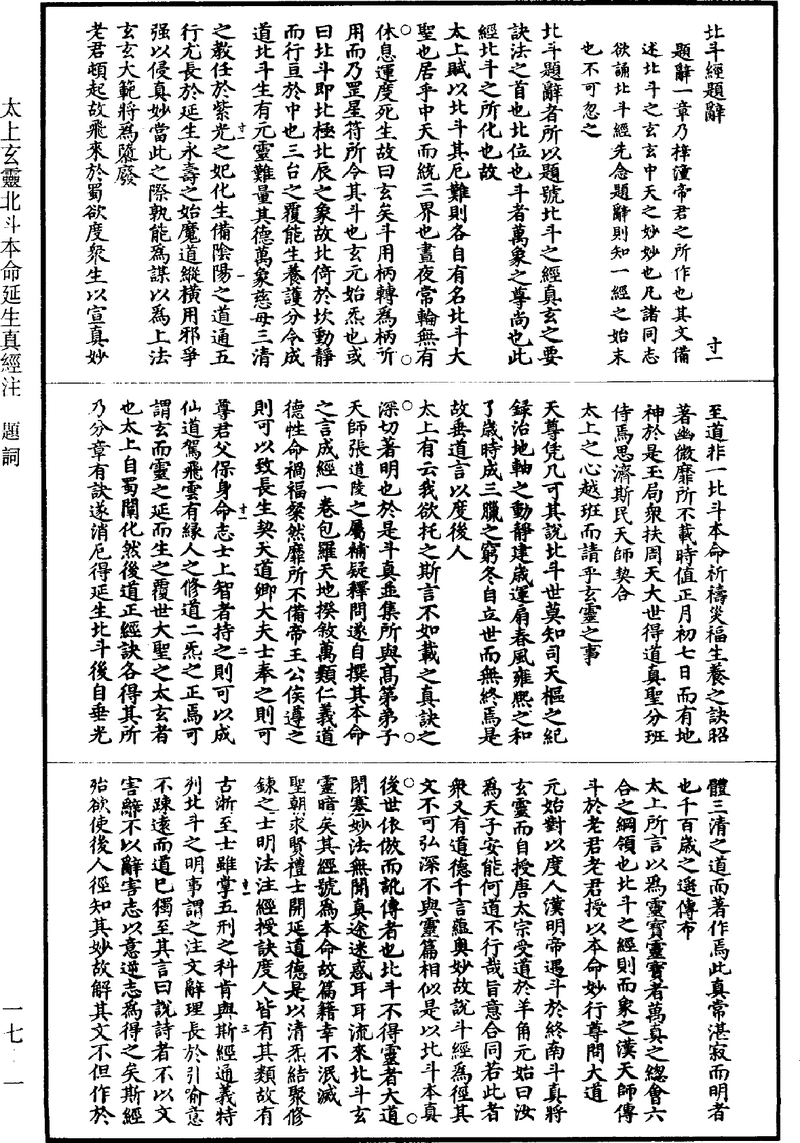 北斗經題辭
題辭一章乃梓潼帝君之所作也其文備
述北斗之玄玄中天之妙妙也凡諸同志
欲誦北斗經先念題辭則知一經之始末
也不可忽之
北斗題辭者所以題號北斗之經真玄之要
訣法之首也北位也斗者萬象之尊尚也此
經北斗之所化也故
太上賦以北斗其厄難則各自有名北斗大
聖也居乎中天而統三界也晝夜常輪無有
休息運度死生故曰玄矣斗用柄轉為柄所
用而乃罡星符所令其斗也玄元始炁也或
曰北斗即北極北辰之象故北倚於坎動靜
而行亘於中也三台之覆能生養護分令成
道北斗生有元靈難量其德萬象慈母三清
之教任於紫光之妃化生備陰陽之道通五
行尤長於延生永壽之始魔道縱橫用邪爭
强以侵真妙當此之際孰能為謀以為上法
玄玄大範將為隳廢
老君頓起故飛來於蜀欲度衆生以宣真妙
至道非一北斗本命祈禱災福生養之訣昭
著幽微靡所不載時值正月初七日而有地
神於是玉局衆扶周天大世得道真聖分班
侍焉思濟斯民天師契合
太上之心越班而請乎玄靈之事
天尊凭几可其說北斗世莫知司天樞之紀
録治地軸之動靜建歲運扇春風雍熙之和
了歲時成三臘之窮冬自立世而無終焉是
故垂道言以度後人
太上有云我欲托之斯言不如載之真訣之
深切著明也於是斗真並集所與高第弟子
天師張道陵之屬補疑釋問遂自撰其本命
之言成經一卷包羅天地揆敘萬類仁義道
德性命禍福粲然靡所不備帝王公侯遵之
則可以致長生契天道卿大夫士奉之則可
尊君父保身命志士上智者持之則可以成
仙道駕飛雲有緣人之修道二炁之正焉可
謂玄而靈之延而生之覆世大聖之太玄者
也太上自蜀闡化然後道正經訣各得其所
乃分章有訣遂消厄得延生北斗後自垂光
體三清之道而著作焉此真常湛寂而明者
也千百歲之遂傳布
太上所言以為靈寶靈寶者萬真之總會六
合之綱領也北斗之經則而象之漢天師傳
斗於老君老君授以本命妙行尊問大道
元始對以度人漢明帝遇斗於終南斗真將
玄靈而自授唐太宗受道於羊角元始曰汝
為天子安能何道不行哉旨意合同若此者
衆又有道德千言蘊奥妙故說斗經為徑其
文不可弘深不與靈篇相似是以北斗本真
後世依倣而訛傳者也北斗不得靈者大道
閉塞妙法無聞真途迷惑耳耳流來北斗玄
靈暗矣其經號為本命故篇籍幸不泯滅
聖朝求賢禮士開延道德是以清炁結聚修
鍊之士明法注經授訣度人皆有其類故有
古浙至士雖掌五刑之科肯與斯經通義特
列北斗之明事謂之注文辭理長於引喻意
不疎遠而道已獨至其言曰說詩者不以文
害辭不以辭害志以意逆志為得之矣斯經
殆欲使後人徑知其妙故解其文不但作於
太上玄靈北斗本命延生真經注 題詞
一七 一